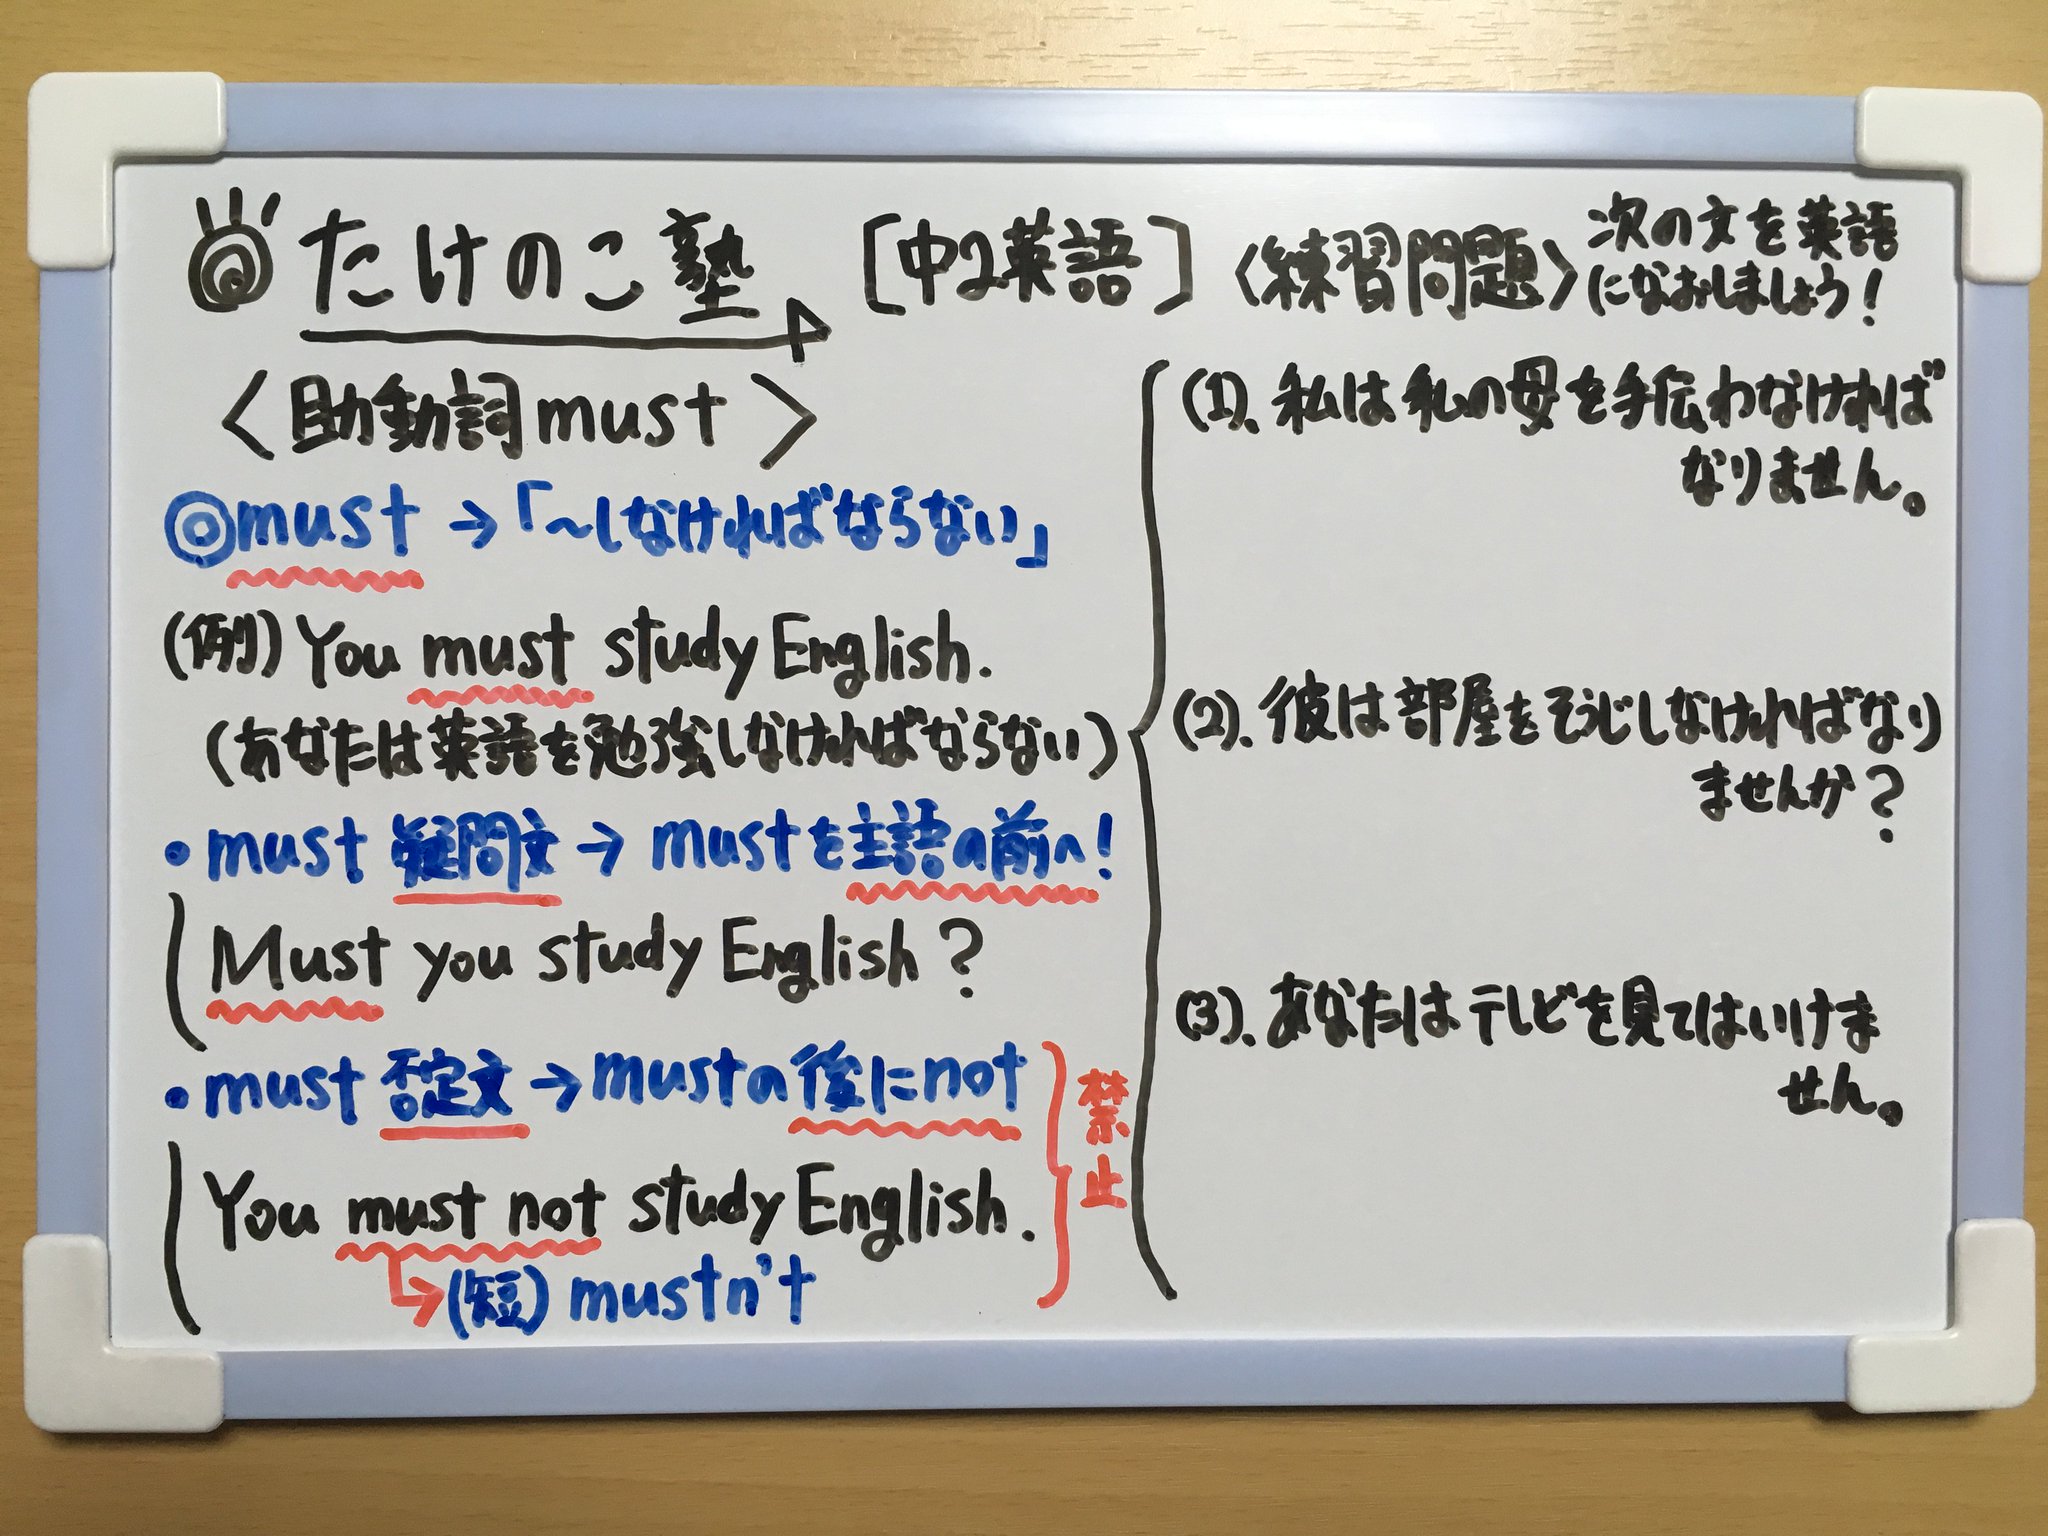 たけのこ塾 [中2英語]
〈助動詞must〉
◎must→「~しなければならない」
(例) You must study English.
(あなたは英語を勉強しなければならない)
・must 疑問文→mustを主語の前へ!
Must you study English?
・must 否定文→mustの後にnot
禁止
You must not study English.
→(短) mustn't
〈練習問題〉次の文を英語
になおしましょう!
(1). 私は私の母を手伝わなければ
なりません。
(2). 彼は部屋をそうじしなければなり
ませんか?
(3). あなたはテレビを見てはいけま
せん。